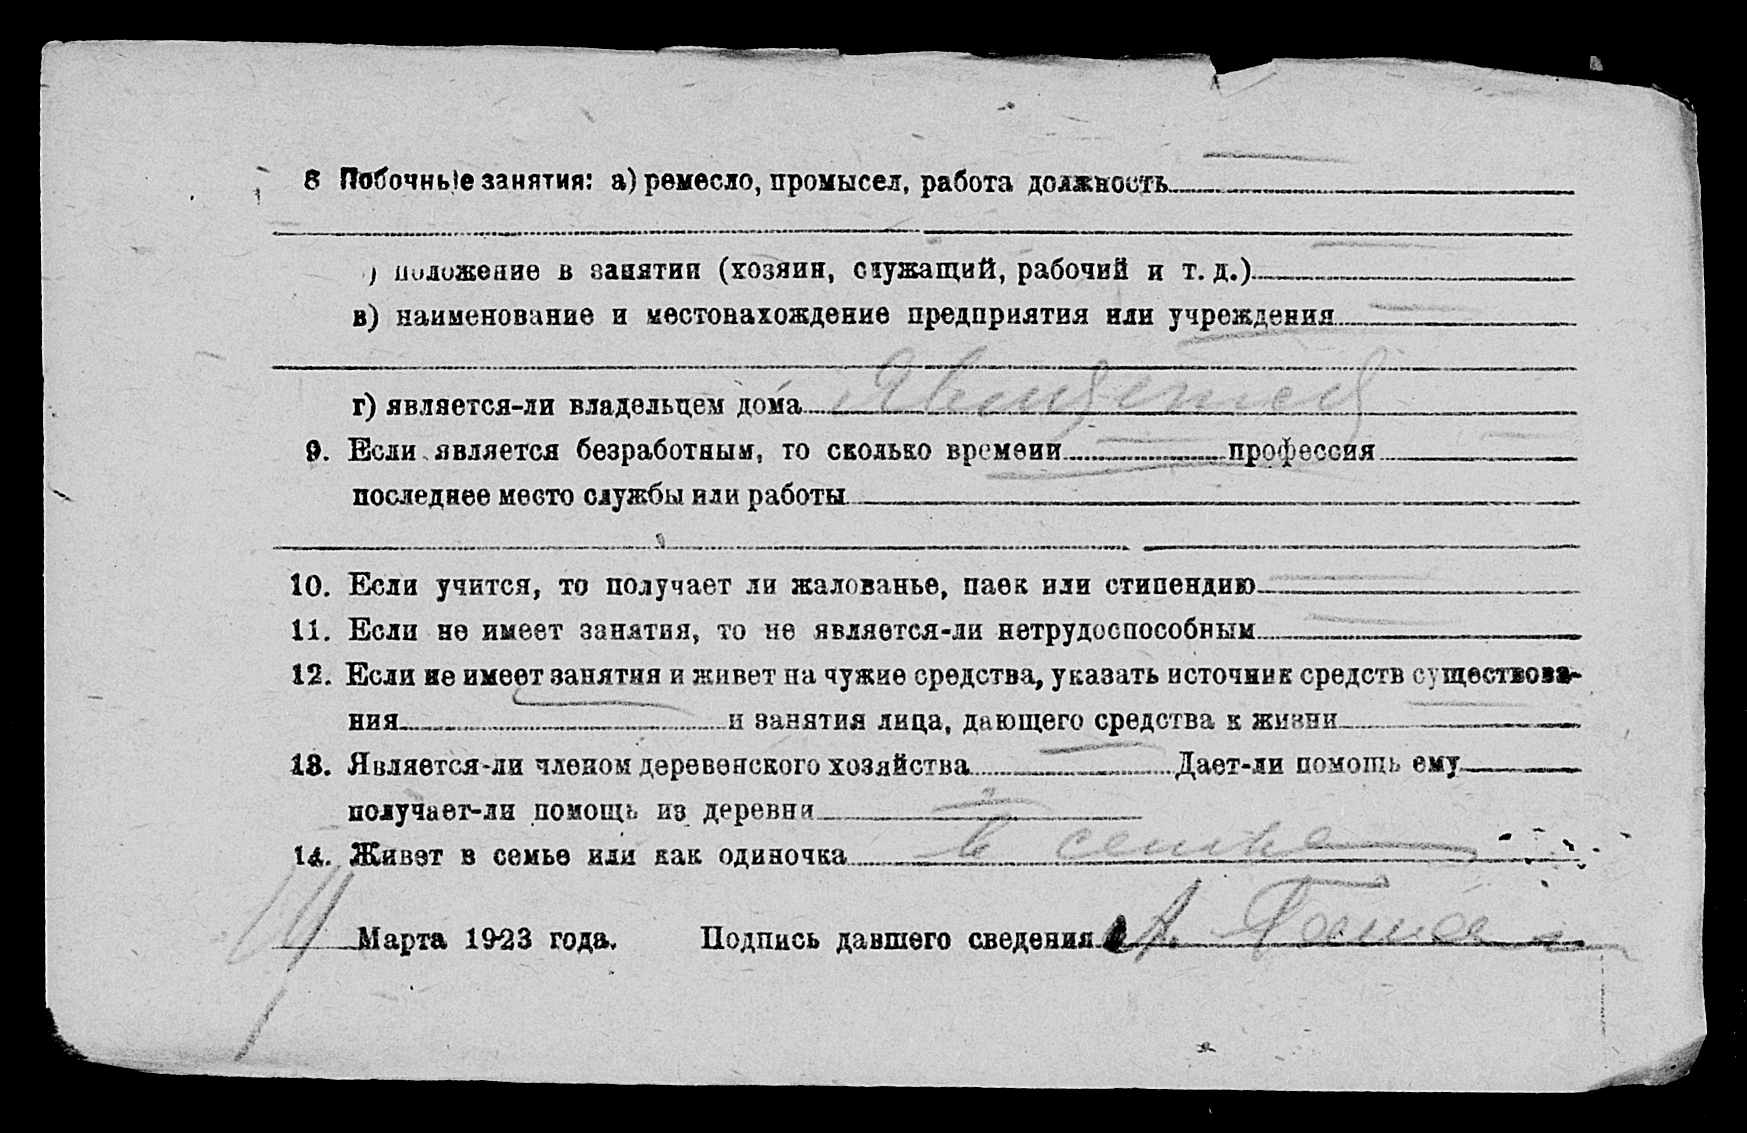 8 Побочные занятия: а) ремесло, промысел, работа должность
) положение в занятии (хозяин, служащий, рабочий и т. д.)
в) наименование и местонахождение предприятия или учреждения
г) является-ли владельцем дома
9. Если является безработным, то сколько времени профессия
последнее место службы или работы
10. Если учится, то получает ли жалованье, паек или стипендию
11. Если не имеет занятия, то не является-ли нетрудоспособным
12. Если не имеет занятия и живет на чужие средства, указать источник средств существова-
ния и занятия лица, дающего средства к жизни
13. Является-ли членом деревенского хозяйства Дает-ли помощь ему
получает-ли помощь из деревни
14. Живет в семье или как одиночка в семье
Марта 1923 года. Подпись давшего сведения А.